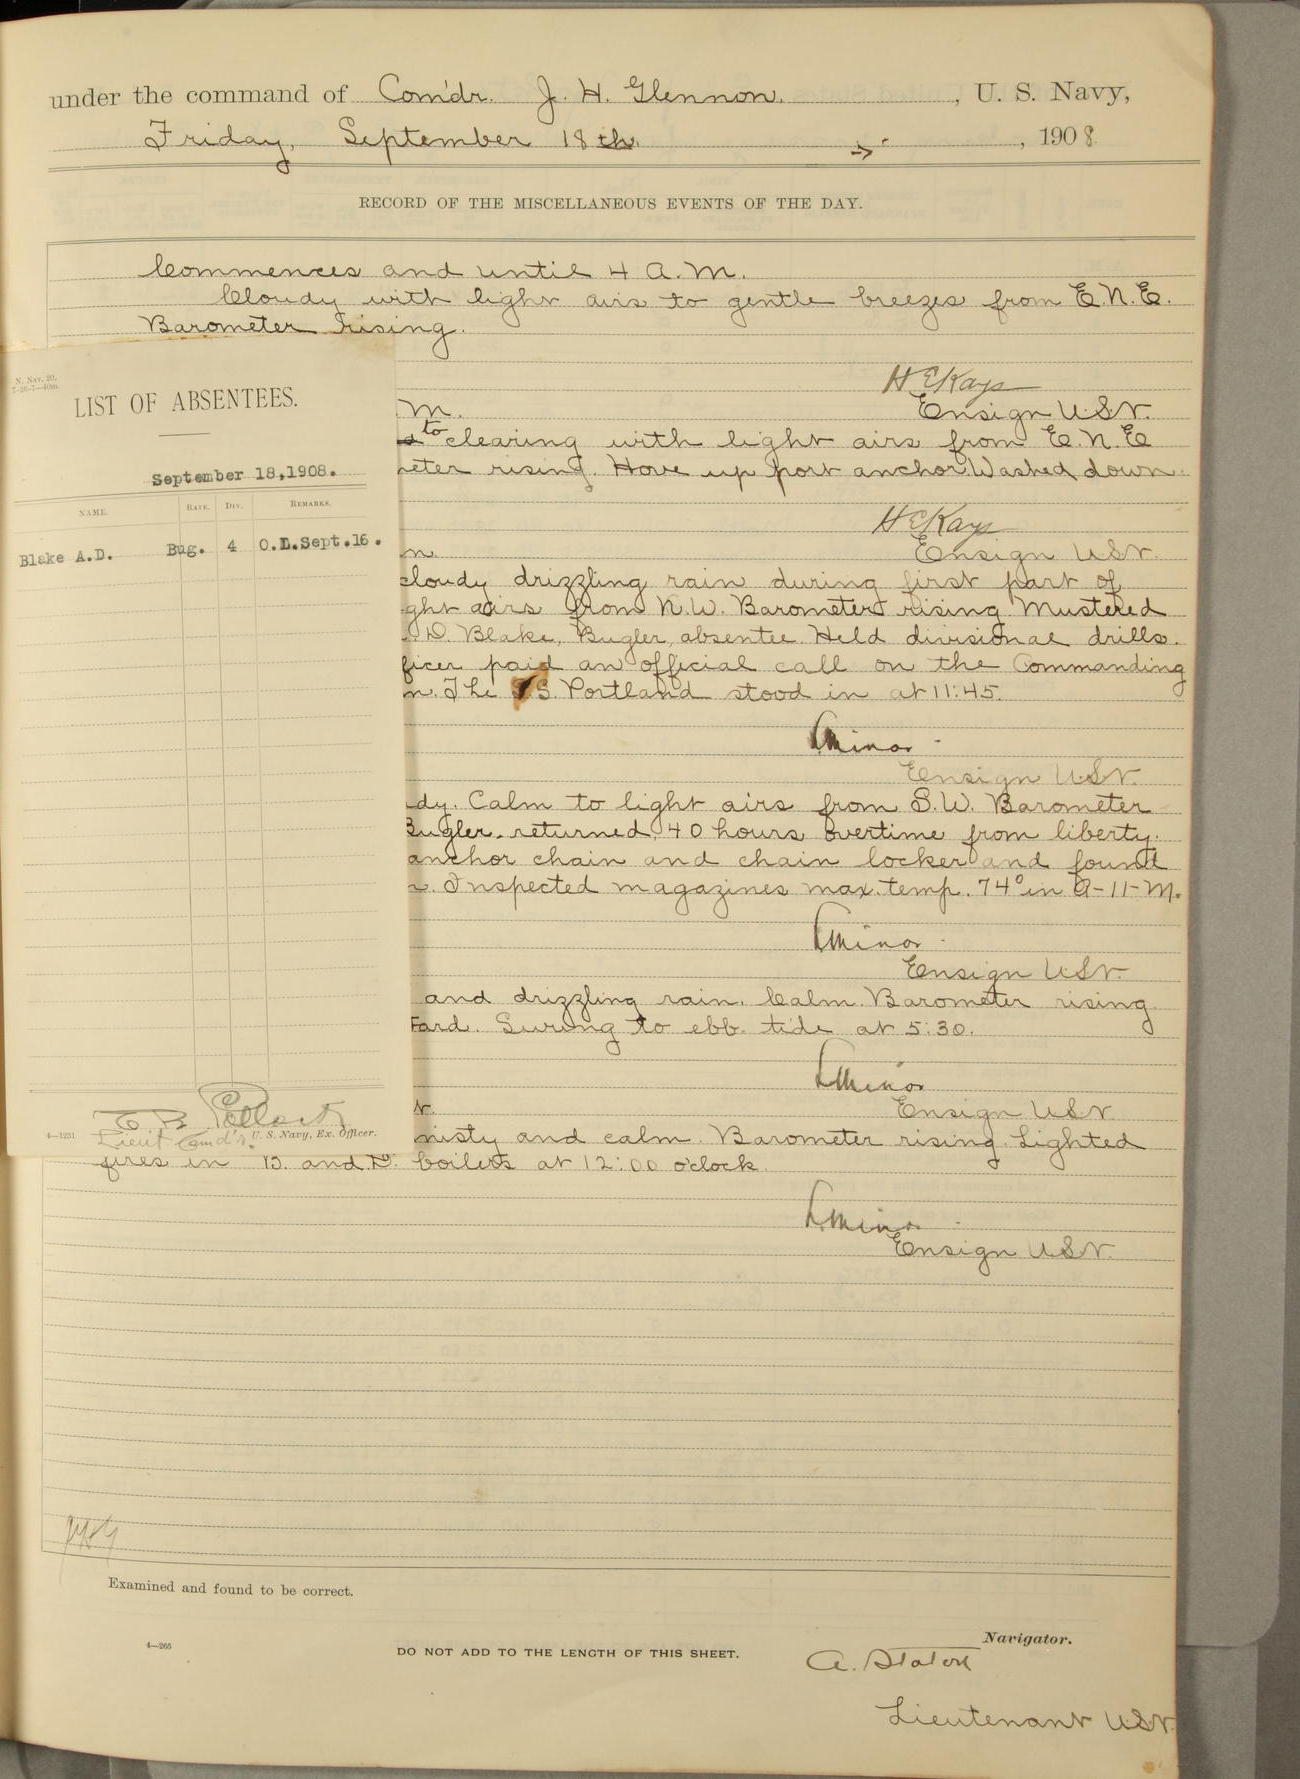 under the command of Com'dr. J. H. Glennon, U. S. Navy,
Friday, September 18th, 1908.
RECORD OF THE MISCELLANEOUS EVENTS OF THE DAY.
Commences and until 4 A.M.
Cloudy with light airs to gentle breezes from E.N.E.
Barometer rising.
H E Kays
Ensign U.S.N.
M.
to clearing with light airs from E.N.E
eter rising. Hove up port anchor. Washed down.
H E Kays
Ensign U.S.N.
n.
cloudy drizzling rain during first part of
ght airs from N.W. Barometer rising. Mustered
D. Blake, Bugler, absentee. Held divisional drills.
ficer paid an official call on the Commanding
n. The S.S. Portland stood in at 11:45.
L Minor
Ensign U.S.N.
dy. Calm to light airs from S.W. Barometer
Bugler, returned, 40 hours overtime from liberty.
anchor chain and chain locker and found
n. Inspected magazines max. temp. 74° in A-11-M.
L Minor
Ensign U.S.N.
and drizzling rain. Calm. Barometer rising.
ard. Swung to ebb tide at 5:30.
L Minor
Ensign U.S.N.
misty and calm. Barometer rising. Lighted
fires in B. and D. boilers at 12:00 o'clock.
L Minor
Ensign U.S.N.
Examined and found to be correct.
4—265
DO NOT ADD TO THE LENGTH OF THIS SHEET.
Navigator.
A. Staton
Lieutenant U.S.N.
N. Nav. 20.
LIST OF ABSENTEES.
September 18,1908.
NAME. RATE. DIV. REMARKS.
Blake A.D. Bug. 4 O.L.Sept.16.
E B Pollock
Lieut Comd'r. U. S. Navy, Ex. Officer.
4—1231